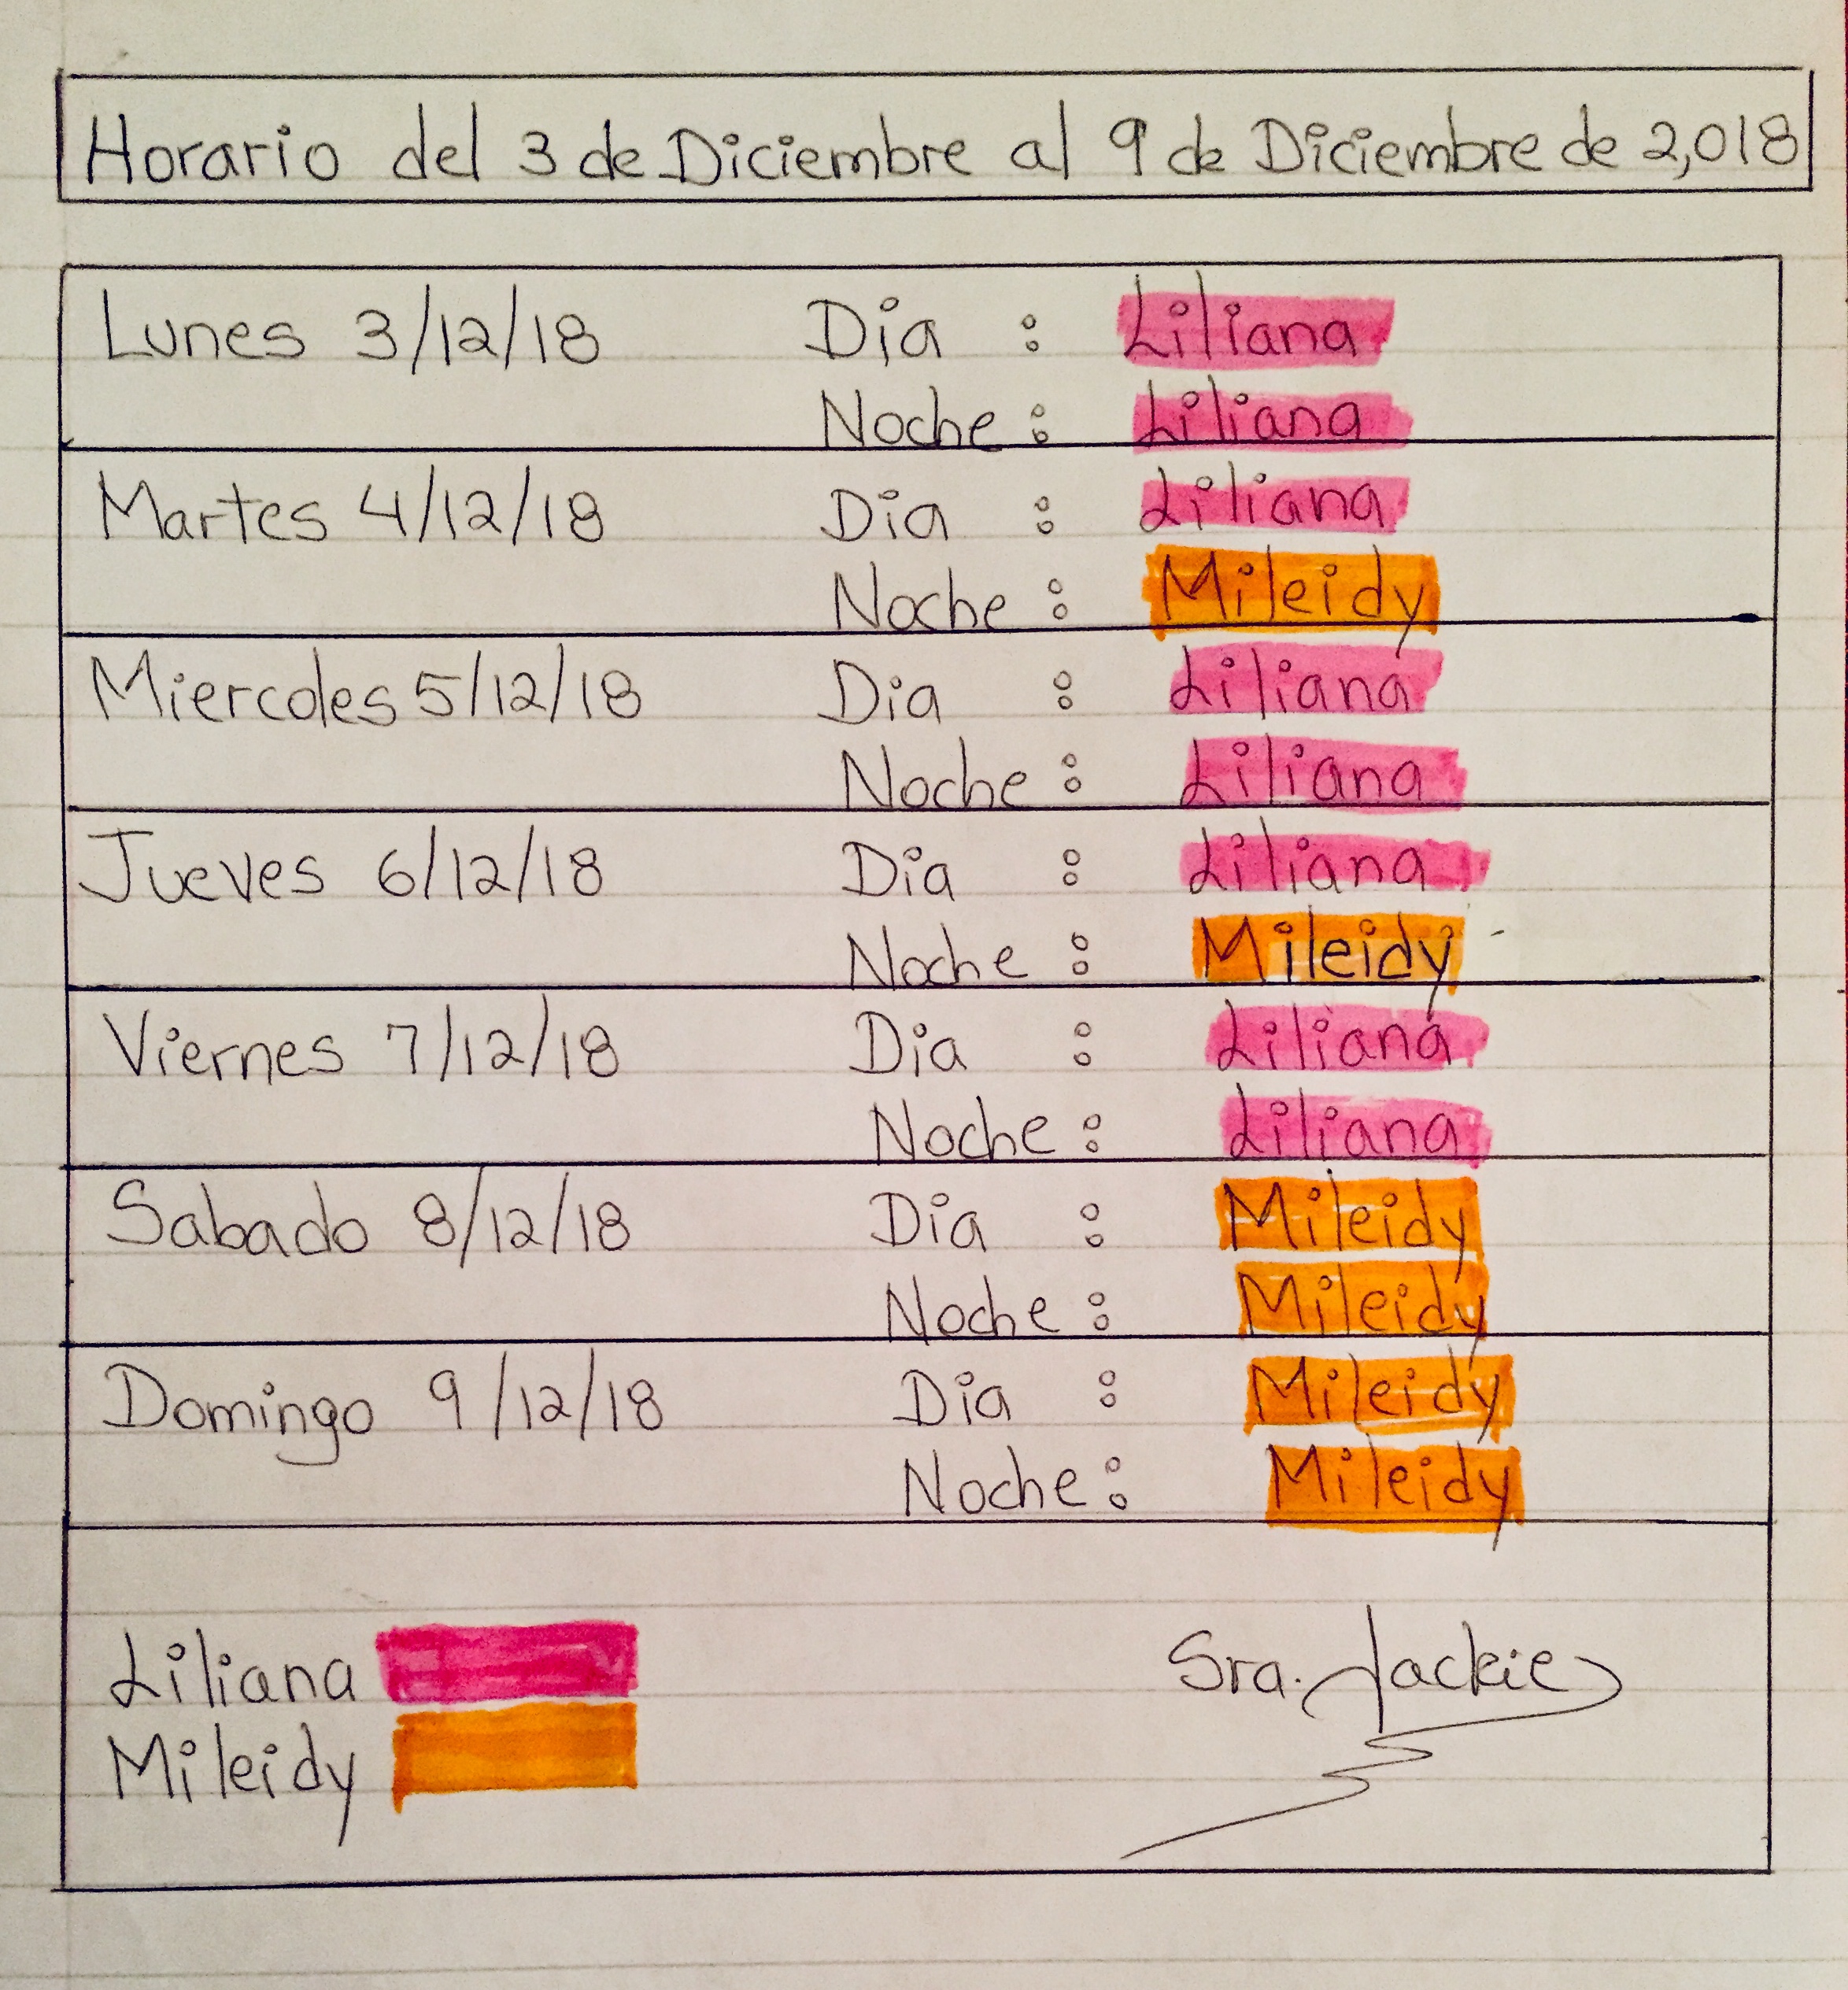 Horario del 3 de Diciembre al 9 de Diciembre de 2,018
Lunes 3/12/18 Dia : Liliana
Noche : Liliana
Martes 4/12/18 Dia : Liliana
Noche : Mileidy
Miercoles 5/12/18 Dia : Liliana
Noche : Liliana
Jueves 6/12/18 Dia : Liliana
Noche : Mileidy
Viernes 7/12/18 Dia : Liliana
Noche : Liliana
Sabado 8/12/18 Dia : Mileidy
Noche : Mileidy
Domingo 9/12/18 Dia : Mileidy
Noche : Mileidy
Liliana Sra. Jackie
Mileidy